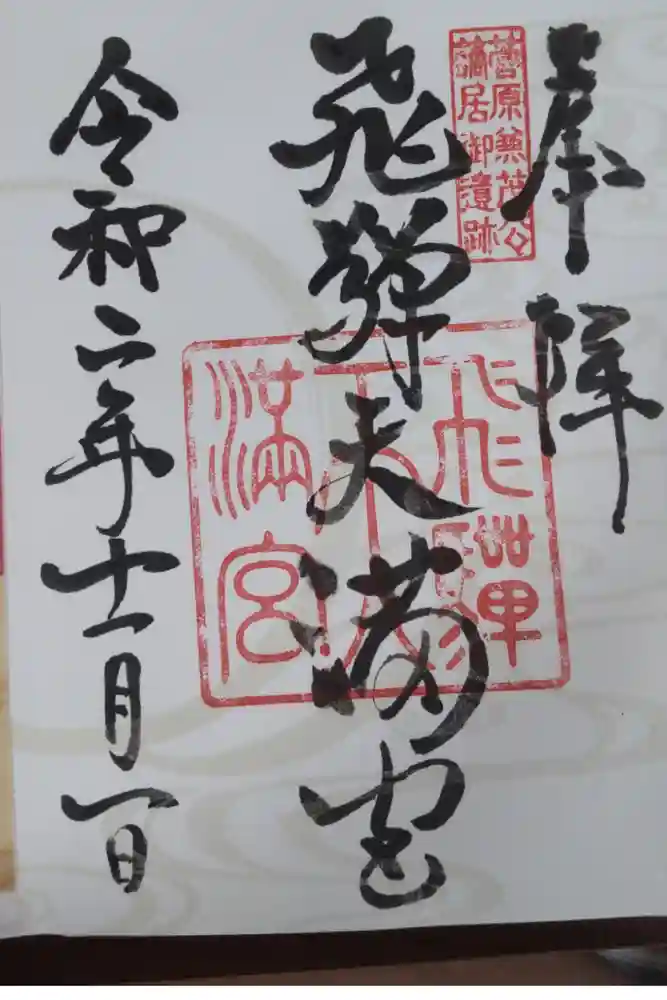 奉拝
菅原兼茂公
謫居御遺跡
飛騨天満宮
飛騨
天
満宮
令和二年十一月一日